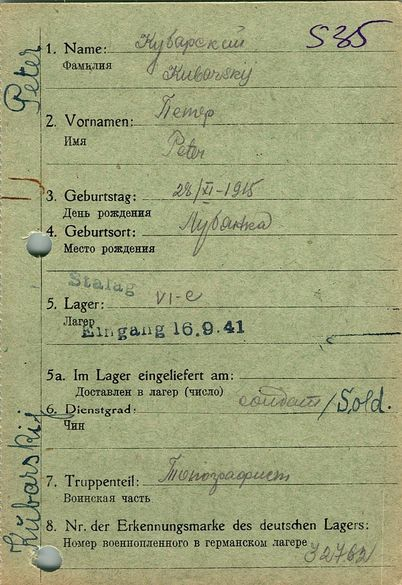 S35
1. Name: Кубарский
Фамилия
Kubarskij
2. Vornamen: Петер
Имя
Peter
3. Geburtstag: 28/XI-1915
День рождения
4. Geburtsort: Лубянка
Место рождения
Stalag
5. Lager: VI-C
Лагер
Eingang 16.9.41
5a. Im Lager eingeliefert am:
Доставлен в лагер (число)
6. Dienstgrad: солдат/Sold.
Чин
7. Truppenteil: Топографист
Воинская часть
8. Nr. der Erkennungsmarke des deutschen Lagers:
Номер военнопленного в германском лагере
32762
Kubarskij Peter